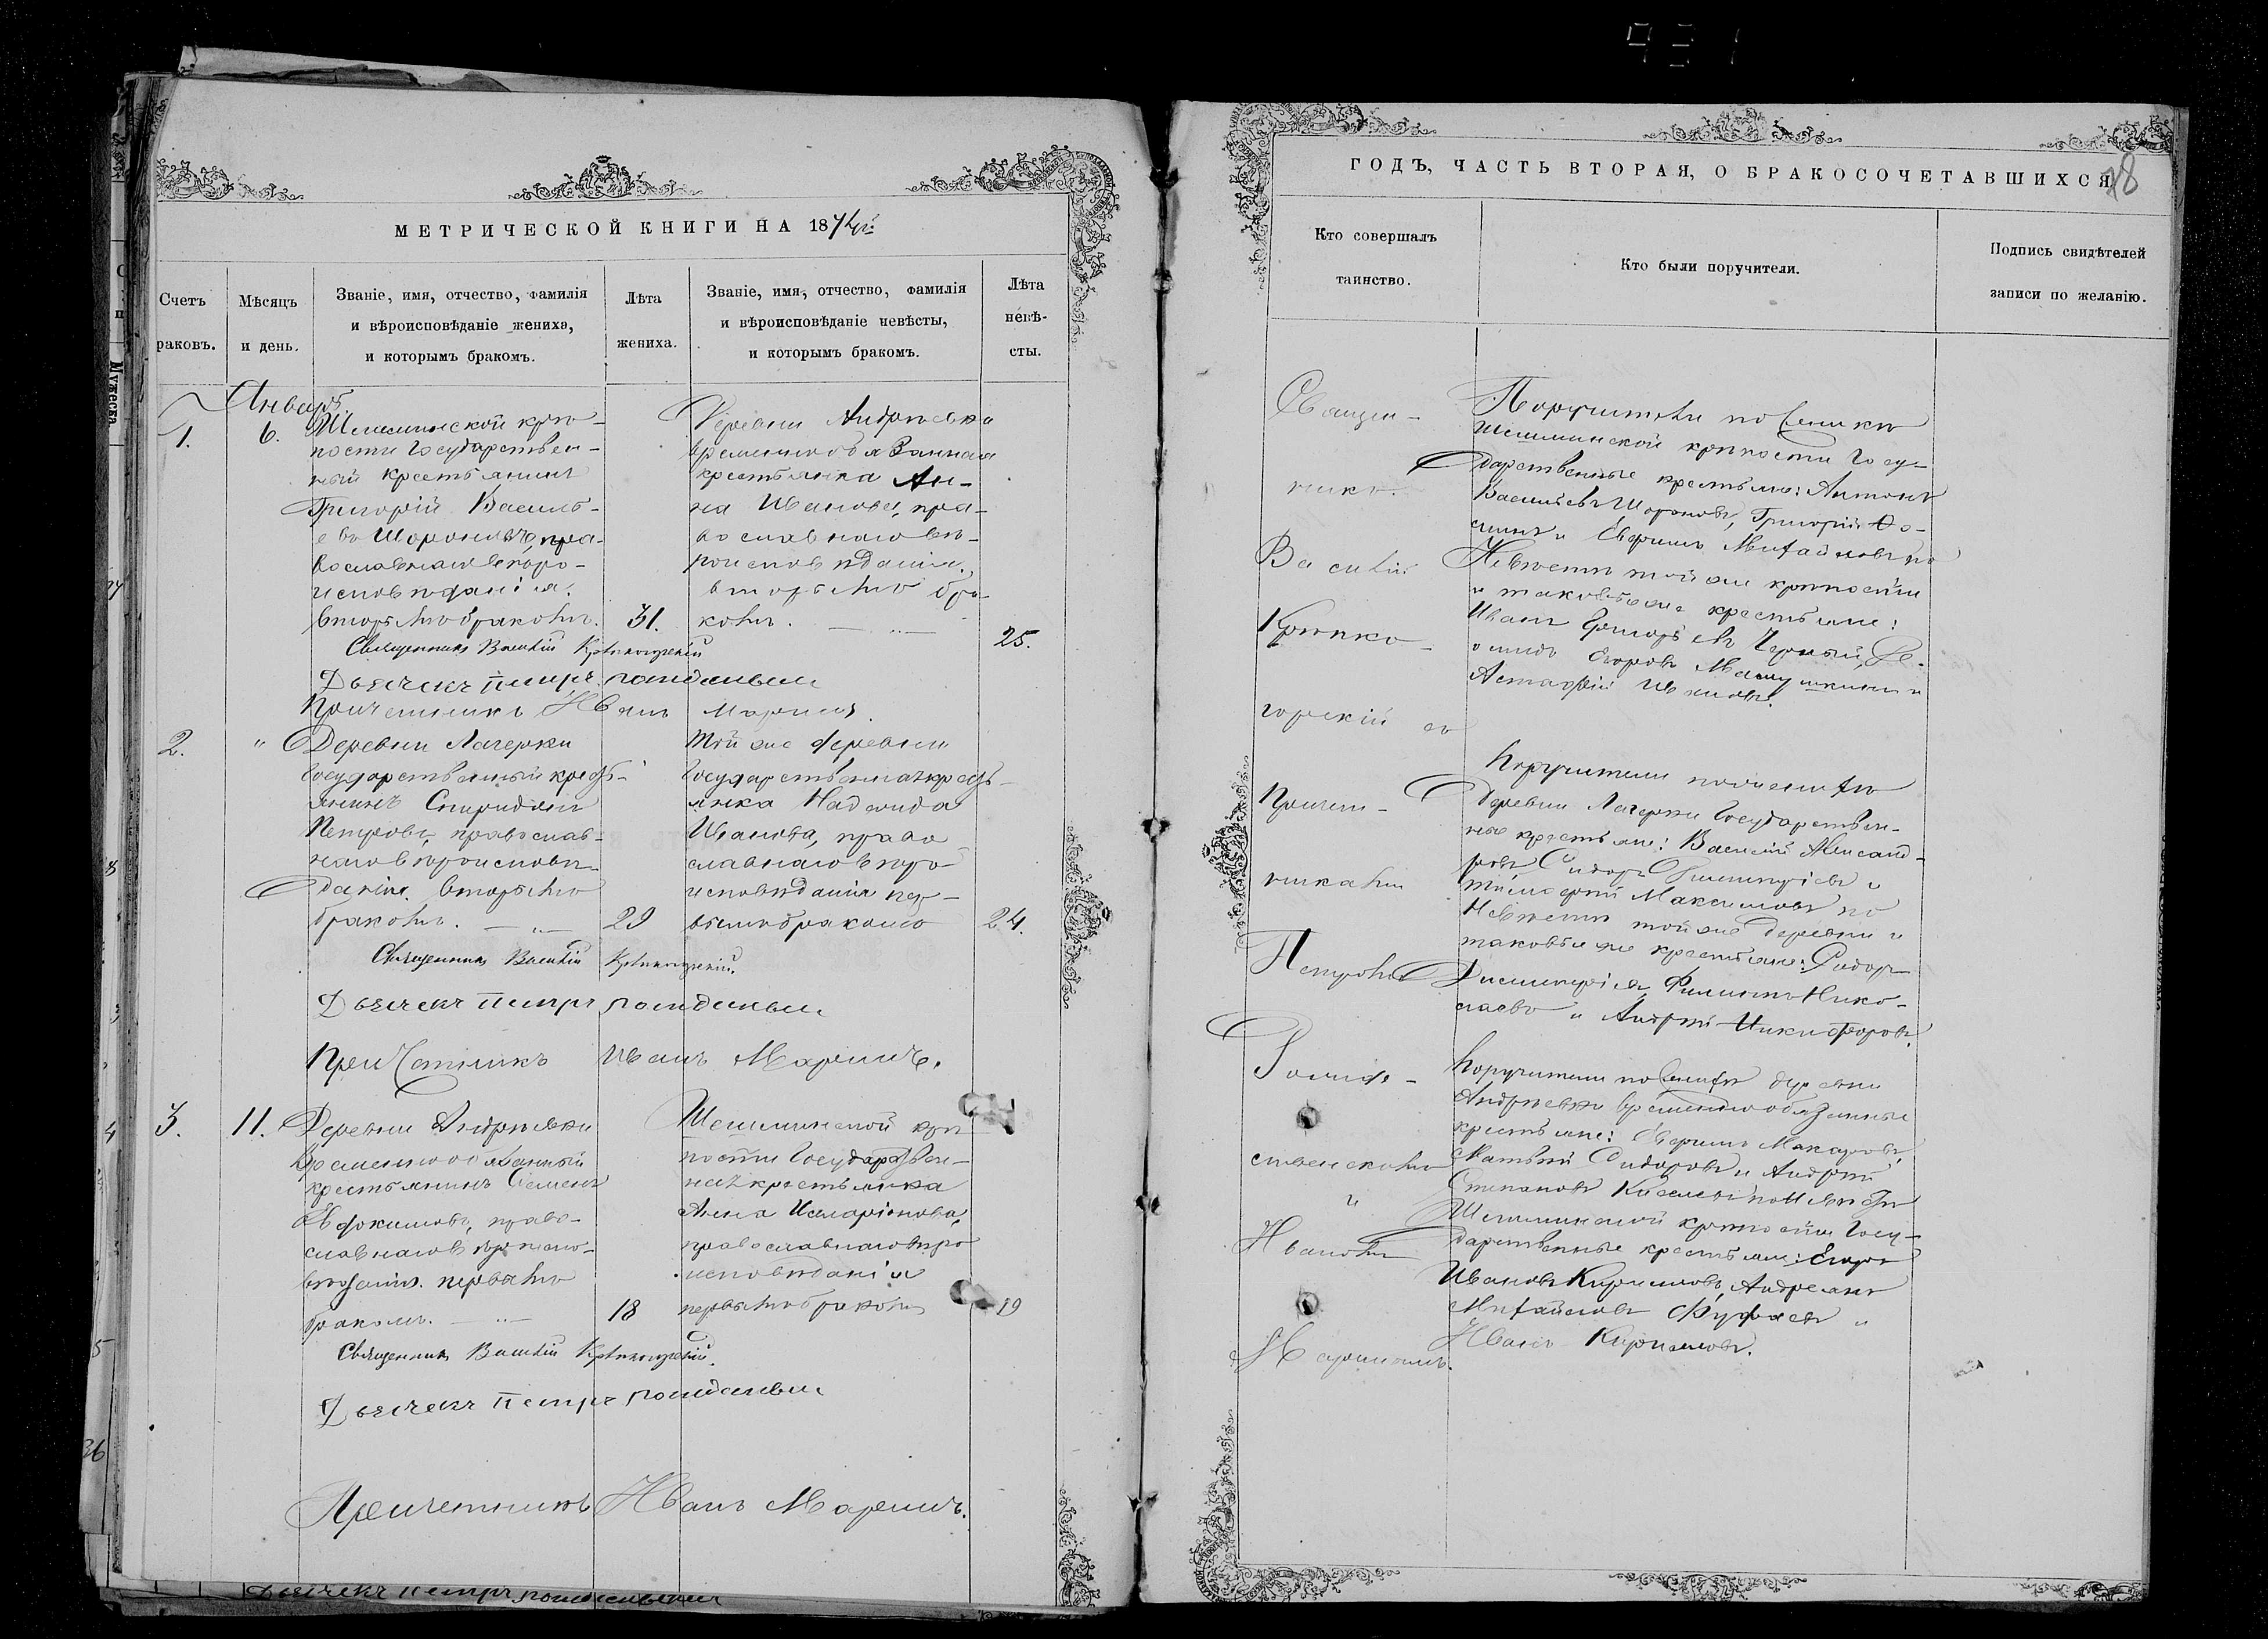 МЕТРИЧЕСКОЙ КНИГИ НА 187
Счетъ
раковъ.
Мѣсяцъ
и день.
Званіе, имя, отчество, фамилія
и вѣроисповѣданіе жениха,
и которымъ бракомъ.
Лѣта
жениха.
Званіе, имя, отчество, фамилія
и вѣроисповѣданіе невѣсты,
и которымъ бракомъ.
Лѣта
невѣ-
сты.
Январь.
1.
6.
Шешминской крѣ-
пости Государствен-
ный крестьянинъ
Григорій Василь-
евъ пра-
вославнаго вѣро-
исповѣданія.
вторымъ бракомъ.
31.
Деревни Андреевки
временнообязанная
крестьянка Ан-
на Иванова, пра-
вославнаго вѣ-
роисповѣданія.
вторымъ бра-
комъ.
25.
Священникъ Василій
Дьячекъ Петръ
Причетникъ Иванъ
2.
"
Деревни Лагерки
Государственный кресть-
янинъ Спиридонъ
Петровъ, православ-
наго вѣроисповѣ-
данія. вторымъ
бракомъ.
29
Той же деревни
Государственная кресть-
янка Надежда
Иванова, право
славнаго вѣро
исповѣданія пер-
вымъ бракомъ
24.
Священникъ Василій
Дьячекъ Петръ
Причетникъ Иванъ
3.
11.
Деревни Андреевки
Временнообязанный
крестьянинъ Семенъ
Евдокимовъ, право-
славнаго вѣроиспо-
вѣданія. первымъ
бракомъ.
18
Шешминской крѣ
пости Государствен-
ная крестьянка
Анна Иларіонова,
православнаго вѣро
исповѣданія
первымъ бракомъ
19
Священникъ Василій
Дьячекъ Петръ
Причетникъ Иванъ
ГОДЪ, ЧАСТЬ ВТОРАЯ, О БРАКОСОЧЕТАВШИХСЯ
Кто совершалъ
таинство.
Кто были поручители.
Подпись свидѣтелей
записи по желанію.
Священ-
никъ
Василій
Крѣпко-
горскій съ
Причет-
никами
Петромъ
и
Иваномъ
Поручители по Женихѣ
Шешминской крѣпости Госу-
дарственные крестьяне: Антонъ
Васильевъ Григорій Ѳо-
минъ и Ефремъ Михайловъ по
Невѣстѣ той же крѣпости
и таковые же крестьяне:
Иванъ Григорьевъ Черный,
Егоровъ и
Астафій Ивановъ.
Поручители по женихѣ
Деревни Лагерки Государствен-
ные крестьяне: Василій Александ-
ровъ Сидоръ Дмитріевъ и
Максимовъ по
Невѣстѣ той же деревни и
таковые же крестьяне: Сидоръ
Филиппъ Нико-
лаевъ и Андрей Никифоровъ.
Поручители по женихѣ деревни
Андреевки временнообязанные
крестьяне: Ефремъ Макаровъ,
Матвѣй Сидоровъ и Андрей
Степановъ Киселевъ по Невѣстѣ
Шешминской крѣпости Госу-
дарственные крестьяне: Егоръ
Ивановъ Кириловъ, Андреянъ
Михайловъ и
Иванъ Кириловъ.